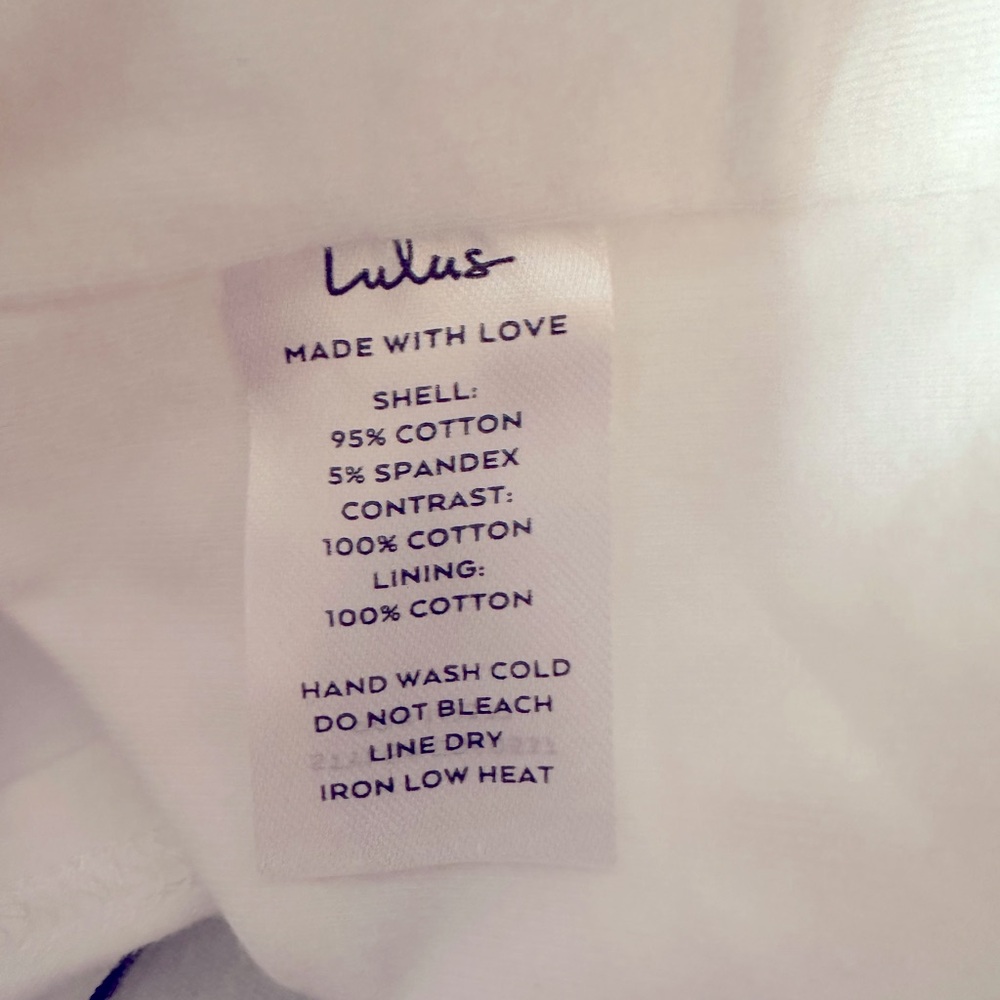 Lulus
MADE WITH LOVE
SHELL:
95% COTTON
5% SPANDEX
CONTRAST:
100% COTTON
LINING:
100% COTTON
HAND WASH COLD
DO NOT BLEACH
LINE DRY
IRON LOW HEAT